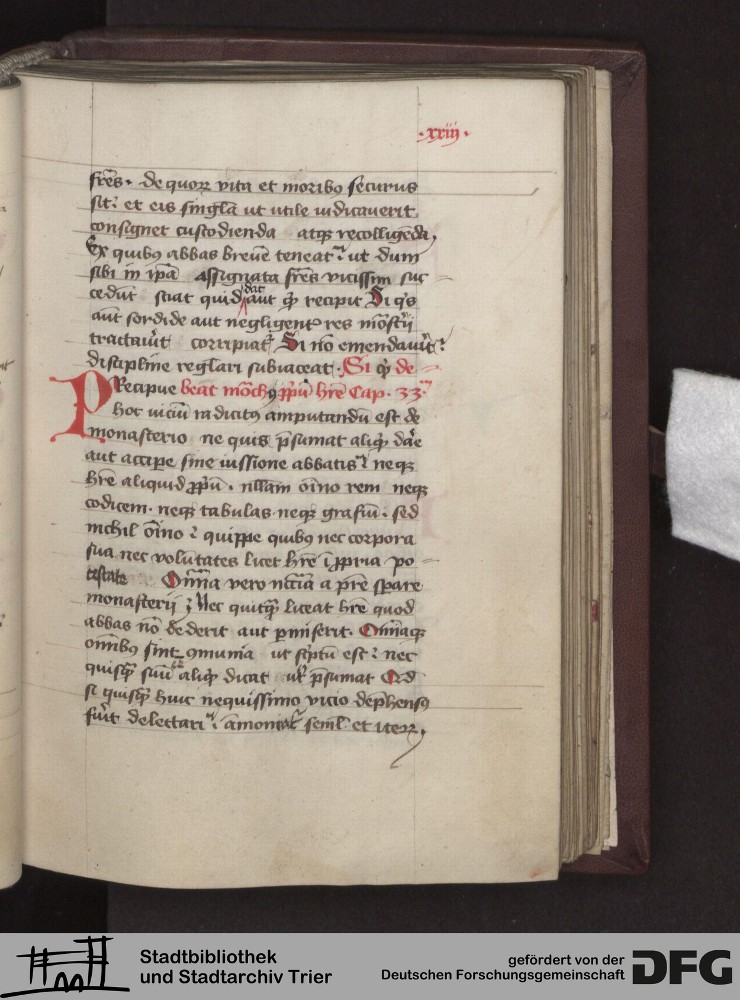 ·xxiij·
fr̄es· de quoꝝ vita et moribꝯ securus
sit: et eis singl̄a ut utile iudicauerit
consignet custodienda atqꝫ recolligēda,
Ex quibꝯ abbas breuē teneat᷑: ut dum
sibi in ip̄a assignata fr̄es vicissim suc-
cedūt sciat quid dat aut qͥ recipit Si qͥs
aūt sordide aut negligent͛ res mōst͛ii
tractau͛it corripiat᷑ Si nō emendau͛it:
discipline regl̄ari subiaceat· Si qͥ de-
PRecipue beāt mōchꝯ ꝓp̄ū hr̄e Cap· 33·
hoc uiciū radicitꝯ amputandū est de
monasterio ne quis p̄sumat aliqͥ dāe
aut accipe sine iussione abbatis: neqꝫ
hr̄e aliquid ꝓp̄ū· nllam oīno rem neqꝫ
codicem· neqꝫ tabulas neqꝫ grafiū· sed
nichil oīno: quippe quibꝯ nec corpora
sua nec volūtates licet hr̄e ī ꝓpria po-
testate Omīa vero nc̄cīa a pr̄e spare
monasterij ; Nec quitqͣ̄ liceat hr̄e quod
abbas nō dederit aut ꝑmiserit· Omīaqꝫ
omībꝯ sint ꝯmunia ut sc͛ptū est: nec
quisqͣ̄ suū aliqͥ dicat ul᷑ p̄sumat Qd
si quisqͣ̄ huic nequissimo vicio dep͛hensꝯ
fu͛it delectari: āmoneat᷑ semł et iteꝝ,
Stadtbibliothek
und Stadtarchiv Trier
gefördert von der
Deutschen Forschungsgemeinschaft
DFG